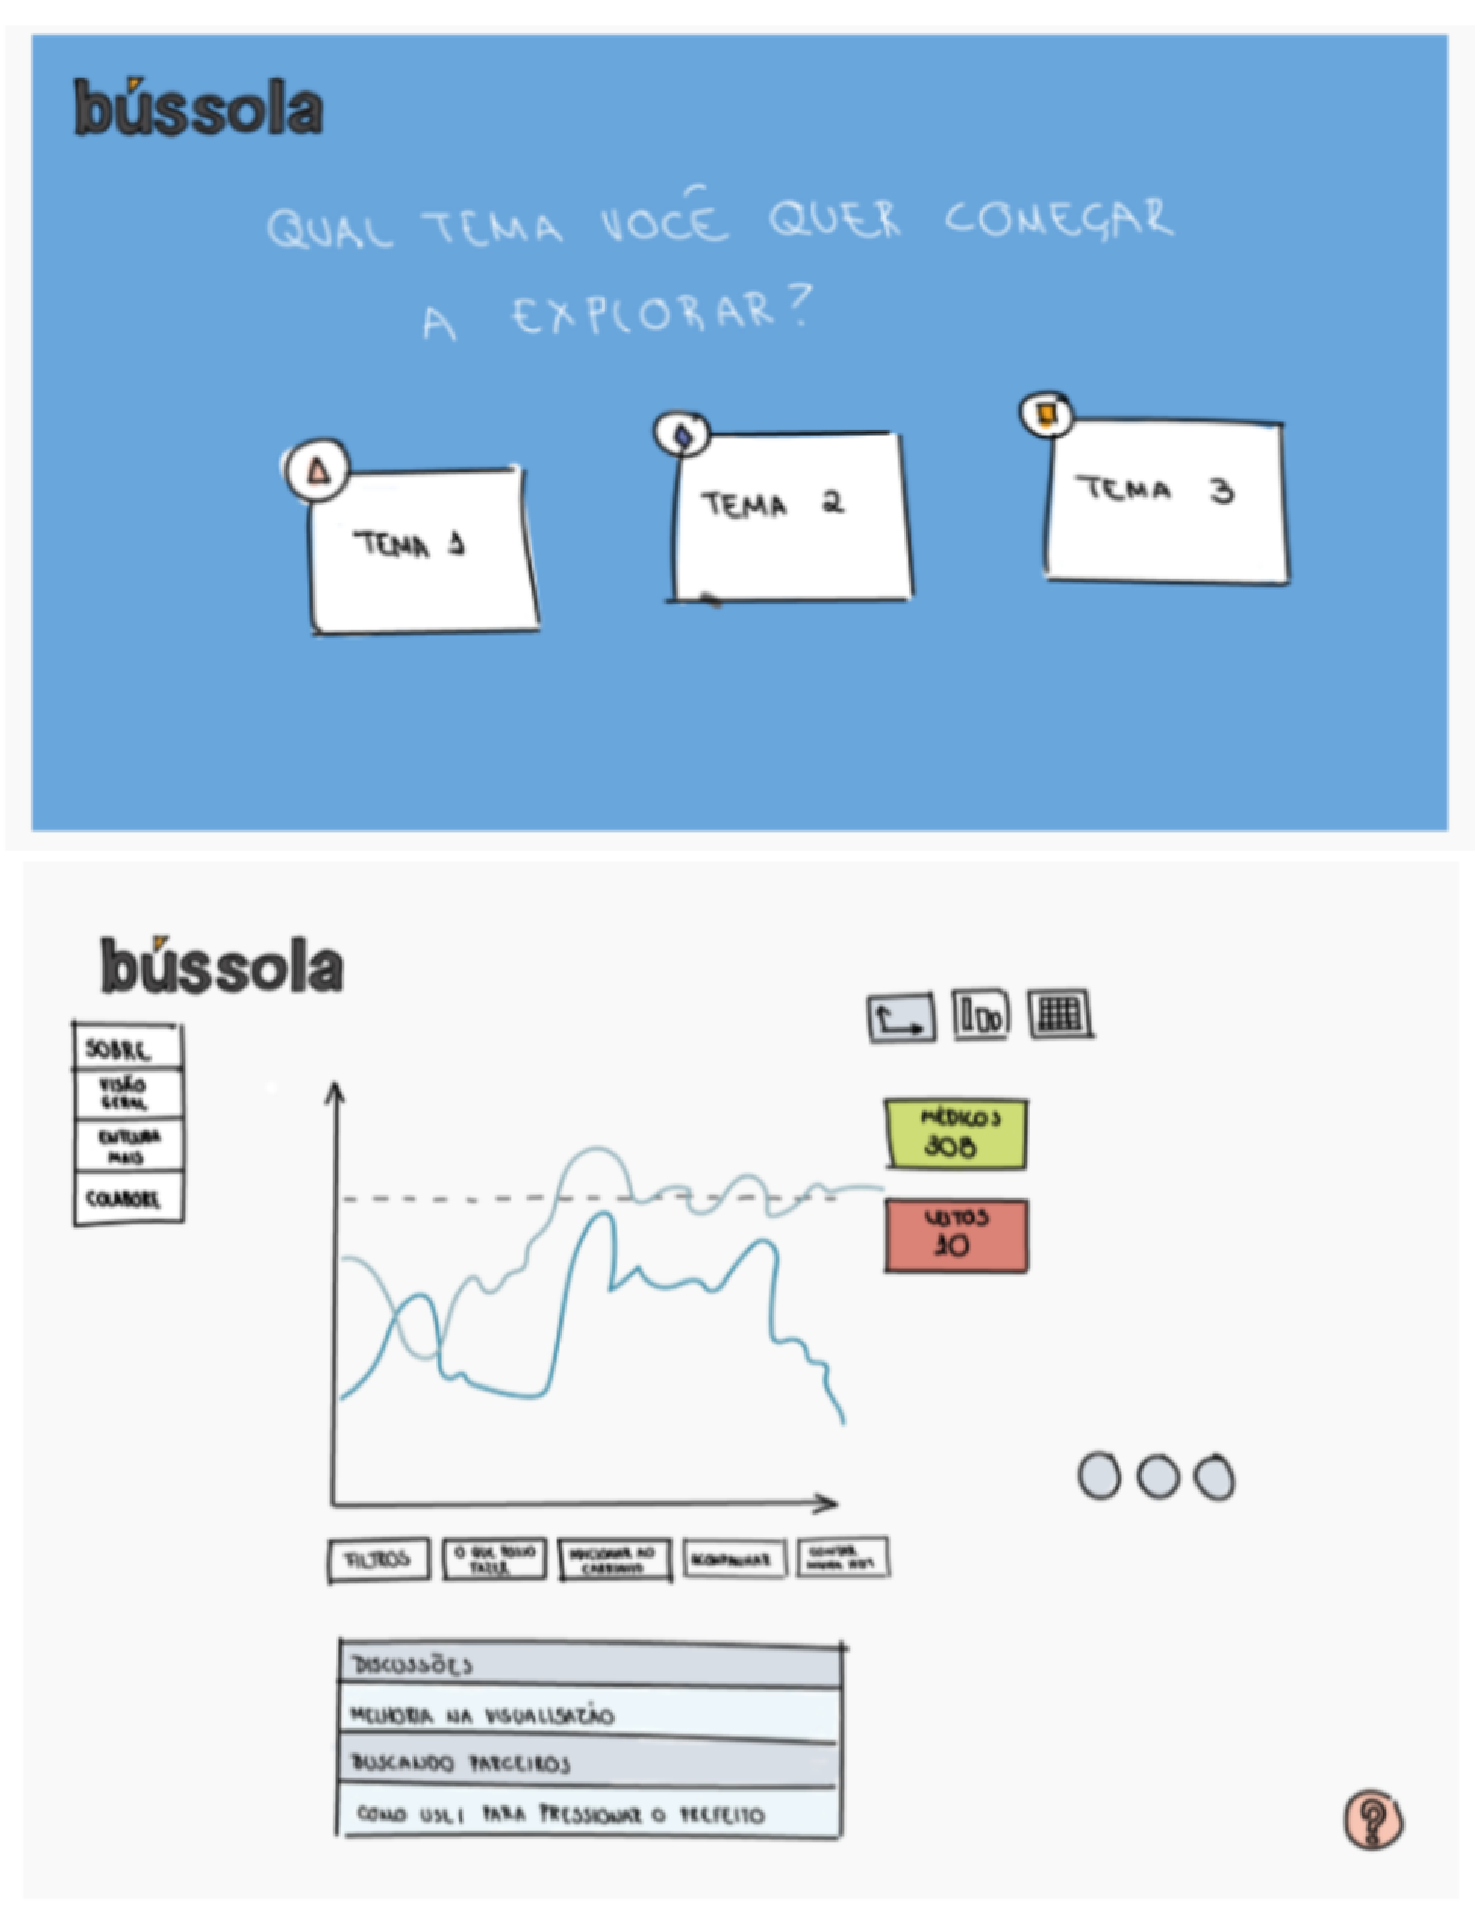 bússola
QUAL TEMA VOCÊ QUER COMEÇAR
A EXPLORAR?
TEMA 1
TEMA 2
TEMA 3
bússola
SOBRE
VISÃO
GERAL
ENTENDA
MAIS
COLABORE
MÉDICOS
308
LEITOS
10
FILTROS
O QUE POSSO
FAZER
ADICIONAR AO
CARRINHO
ACOMPANHAR
CONTAR
DISCUSSÕES
MELHORIA NA VISUALISAZÃO
BUSCANDO PARCEIROS
COMO USEI PARA PRESSIONAR O PREFEITO
?